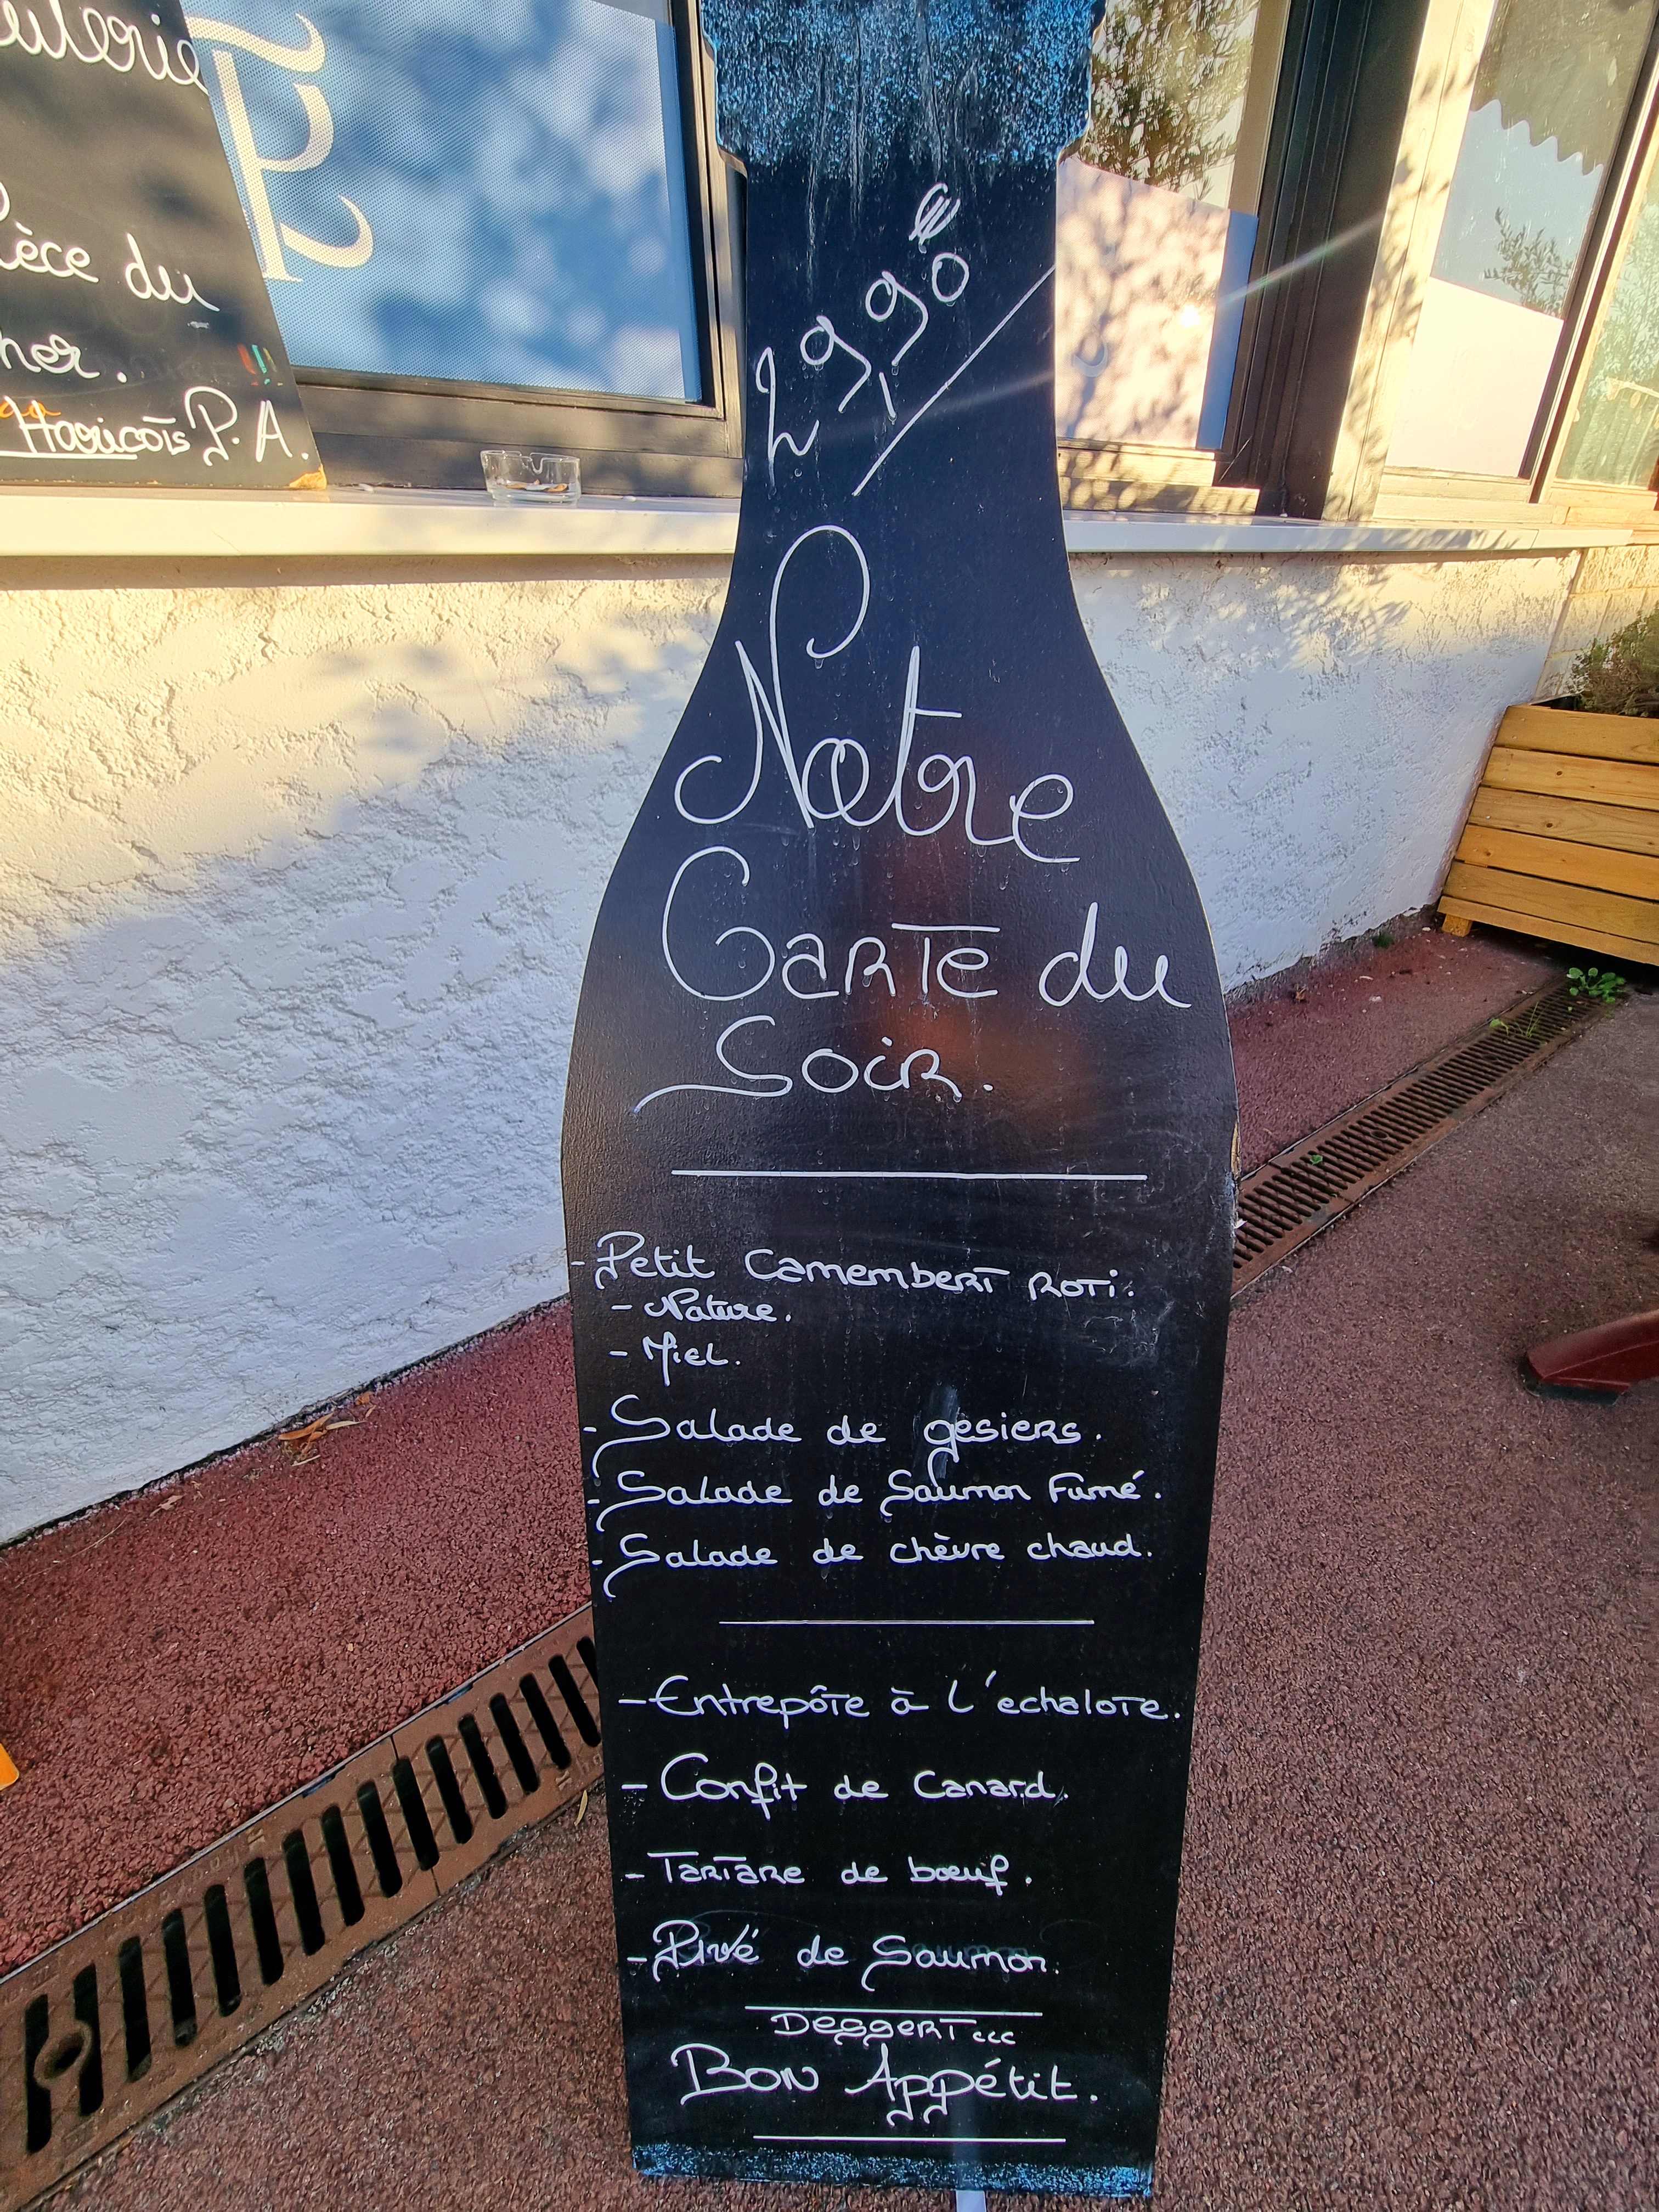 ièce du
her.
Haricots P.A.
29,90€
Notre
Carte du
Soir.
- Petit Camembert roti.
- Nature.
- Miel.
- Salade de gesiers.
- Salade de Saumon Fumé.
- Salade de chèvre chaud.
- Entrepôte à l'echalote.
- Confit de Canard.
- Tartare de bœuf.
- Pavé de Saumon.
Dessert...
Bon Appétit.